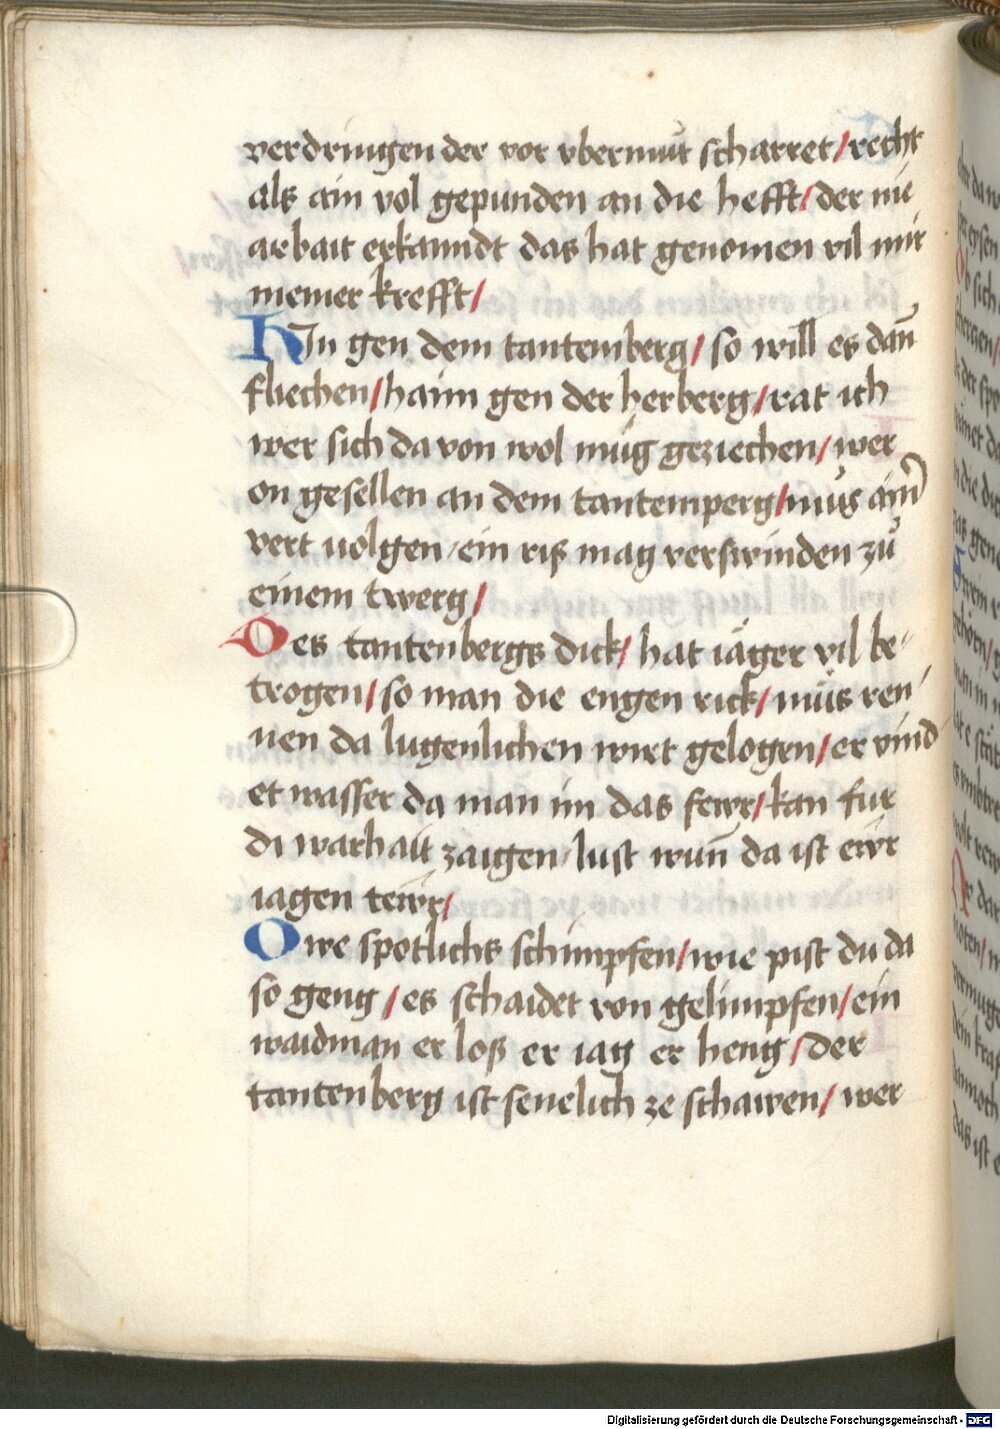 verdringen der vor vbermůt scharret / recht
als ain vol gepunden an die hefft / der nie
arbait erkanndt das hat genomen vil mir
meiner krefft /
Hin gen dem tantemberg / so will es dañ
fliechen / haim gen der herberg / rat ich
wer sich da von wol mug geziechen / wer
on gesellen an dem tantemperg / můs aim
vert uolgen / ein riß mag verswinden zů
einem twerg /
Des tantenbergs dick / hat iäger vil be-
trogen / so man die engen rick / můs ren-
nen da lugenlichen wirt gelogen / er vind
et wasser da man im das fewr / kan fur
di warhait zaigen / lust wuñ da ist ewr
iagen tewr /
Owe spotlichs schimpfen / wie pist du da
so geng / es schaidet von gelimpfen / ein
waidman er loß er iag er heng / der
tantenberg ist senelich ze schawen / wer
Digitalisierung gefördert durch die Deutsche Forschungsgemeinschaft - DFG